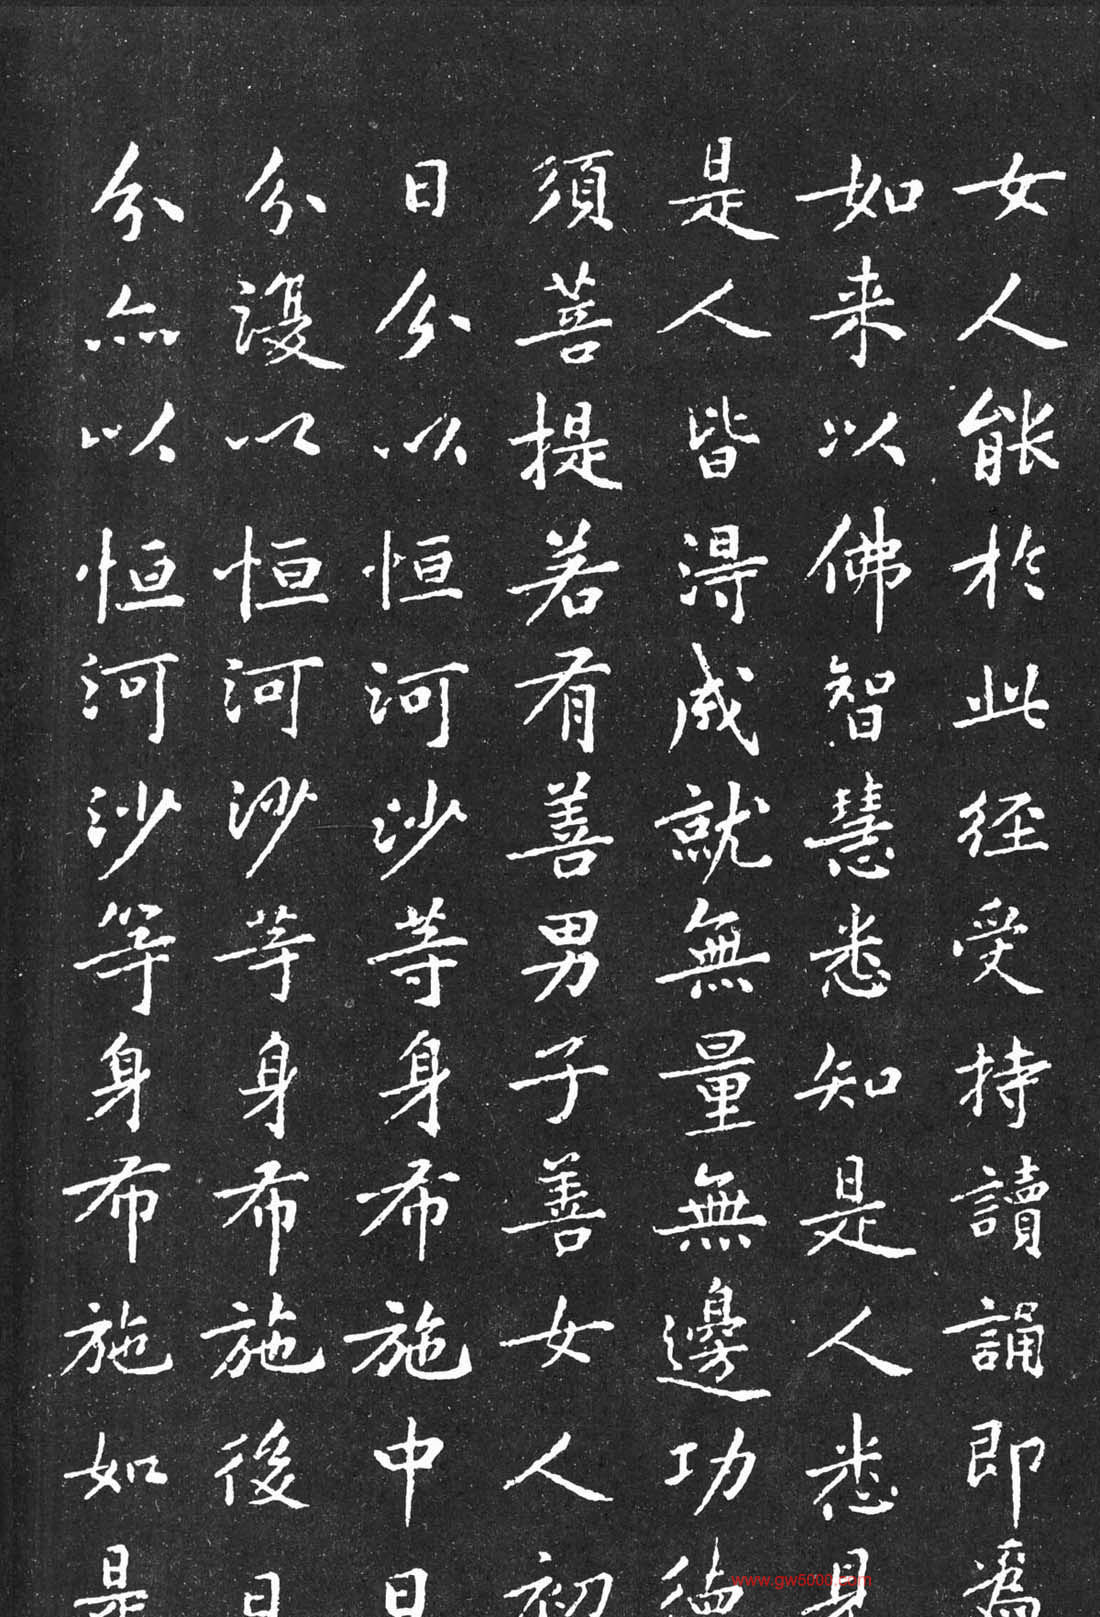 女人能於此经受持讀誦即為
如来以佛智慧悉知是人悉見
是人皆得成就無量無邊功德
須菩提若有善男子善女人初
日分以恒河沙等身布施中日
分復以恒河沙等身布施後日
分亦以恒河沙等身布施如是
www.gw5000.com